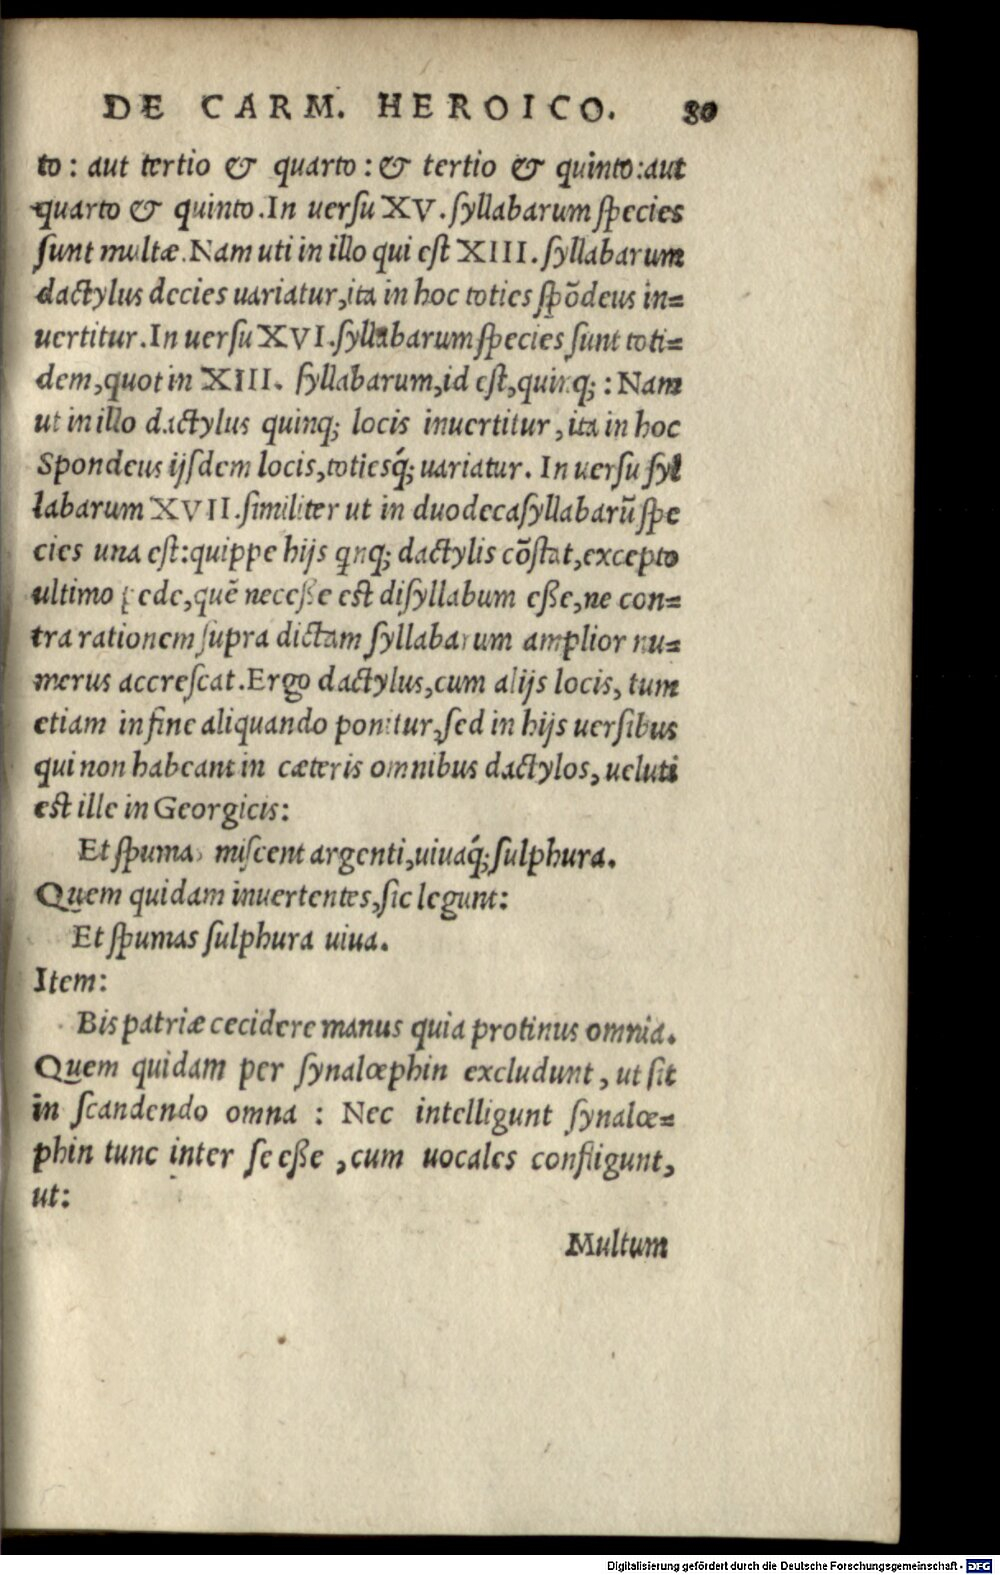 DE CARM. HEROICO. 80
to: aut tertio & quarto: & tertio & quinto: aut
quarto & quinto. In uersu XV. syllabarum species
sunt multæ. Nam uti in illo qui est XIII. syllabarum
dactylus decies uariatur, ita in hoc toties spōdeus in=
uertitur. In uersu XVI. syllabarum species sunt toti=
dem, quot in XIII. syllabarum, id est, quinq;: Nam
ut in illo dactylus quinq; locis inuertitur, ita in hoc
Spondeus ijsdem locis, totiesq́; uariatur. In uersu syl
labarum XVII. similiter ut in duodecasyllabarū spe
cies una est: quippe hijs qnq; dactylis cōstat, excepto
ultimo pede, quē necesse est disyllabum esse, ne con=
tra rationem supra dictam syllabarum amplior nu=
merus accrescat. Ergo dactylus, cum alijs locis, tum
etiam in fine aliquando ponitur, sed in hijs uersibus
qui non habeant in cæteris omnibus dactylos, ueluti
est ille in Georgicis:
Et spumas miscent argenti, uiuaq́; sulphura.
Quem quidam inuertentes, sic legunt:
Et spumas sulphura uiua.
Item:
Bis patriæ cecidere manus quia protinus omnia.
Quem quidam per synalœphin excludunt, ut sit
in scandendo omna: Nec intelligunt synalœ=
phin tunc inter se esse, cum uocales confligunt,
ut:
Multum
Digitalisierung gefördert durch die Deutsche Forschungsgemeinschaft - DFG